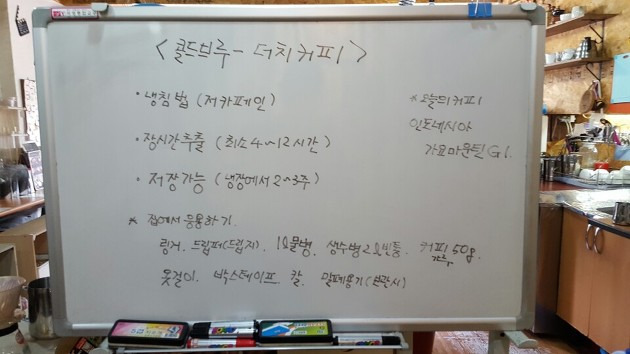 <콜드브루 - 더치커피>
· 냉침법 (저카페인)
· 장시간추출 (최소 4~12시간)
· 저장가능 (냉장에서 2~3주)
* 오늘의커피
인도네시아
가요마운틴 G1.
* 집에서 응용하기
링거. 드립퍼(드립지). 1l물병. 생수병 2l빈통. 커피 50g.
가루
옷걸이. 박스테이프 칼. 밀폐용기(보관시)